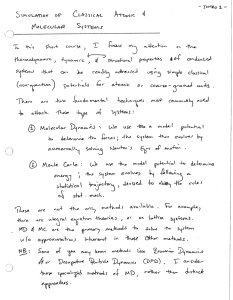 - INTRO 1 -
SIMULATION OF CLASSICAL ATOMIC &
MOLECULAR SYSTEMS
In this short course, I focus my attention on the
thermodynamic, dynamic, & structural properties of condensed
systems that can be readily addressed using simple classical
(non-quantum) potentials for atomic or coarse-grained units.
There are two fundamental techniques most commonly used
to attack these type of systems:
① Molecular Dynamics: We use the a model potential
to determine the forces; the system then evolves by
numerically solving Newton's Eqs of motion.
② Monte Carlo: We use the model potential to determine
energy; the system evolves by following a
statistical trajectory, devised to obey the rules
of stat. mech.
These are not the only methods available. For example,
there are integral equation theories, or on lattice systems.
MD & MC are the primary methods to solve the system
w/o approximations inherent in these other methods.
NB: Some of you may know methods like Brownian Dynamics
&/or Dissipative Particle Dynamics (DPD). I consider
these specialist methods of MD, rather than distinct
approaches.